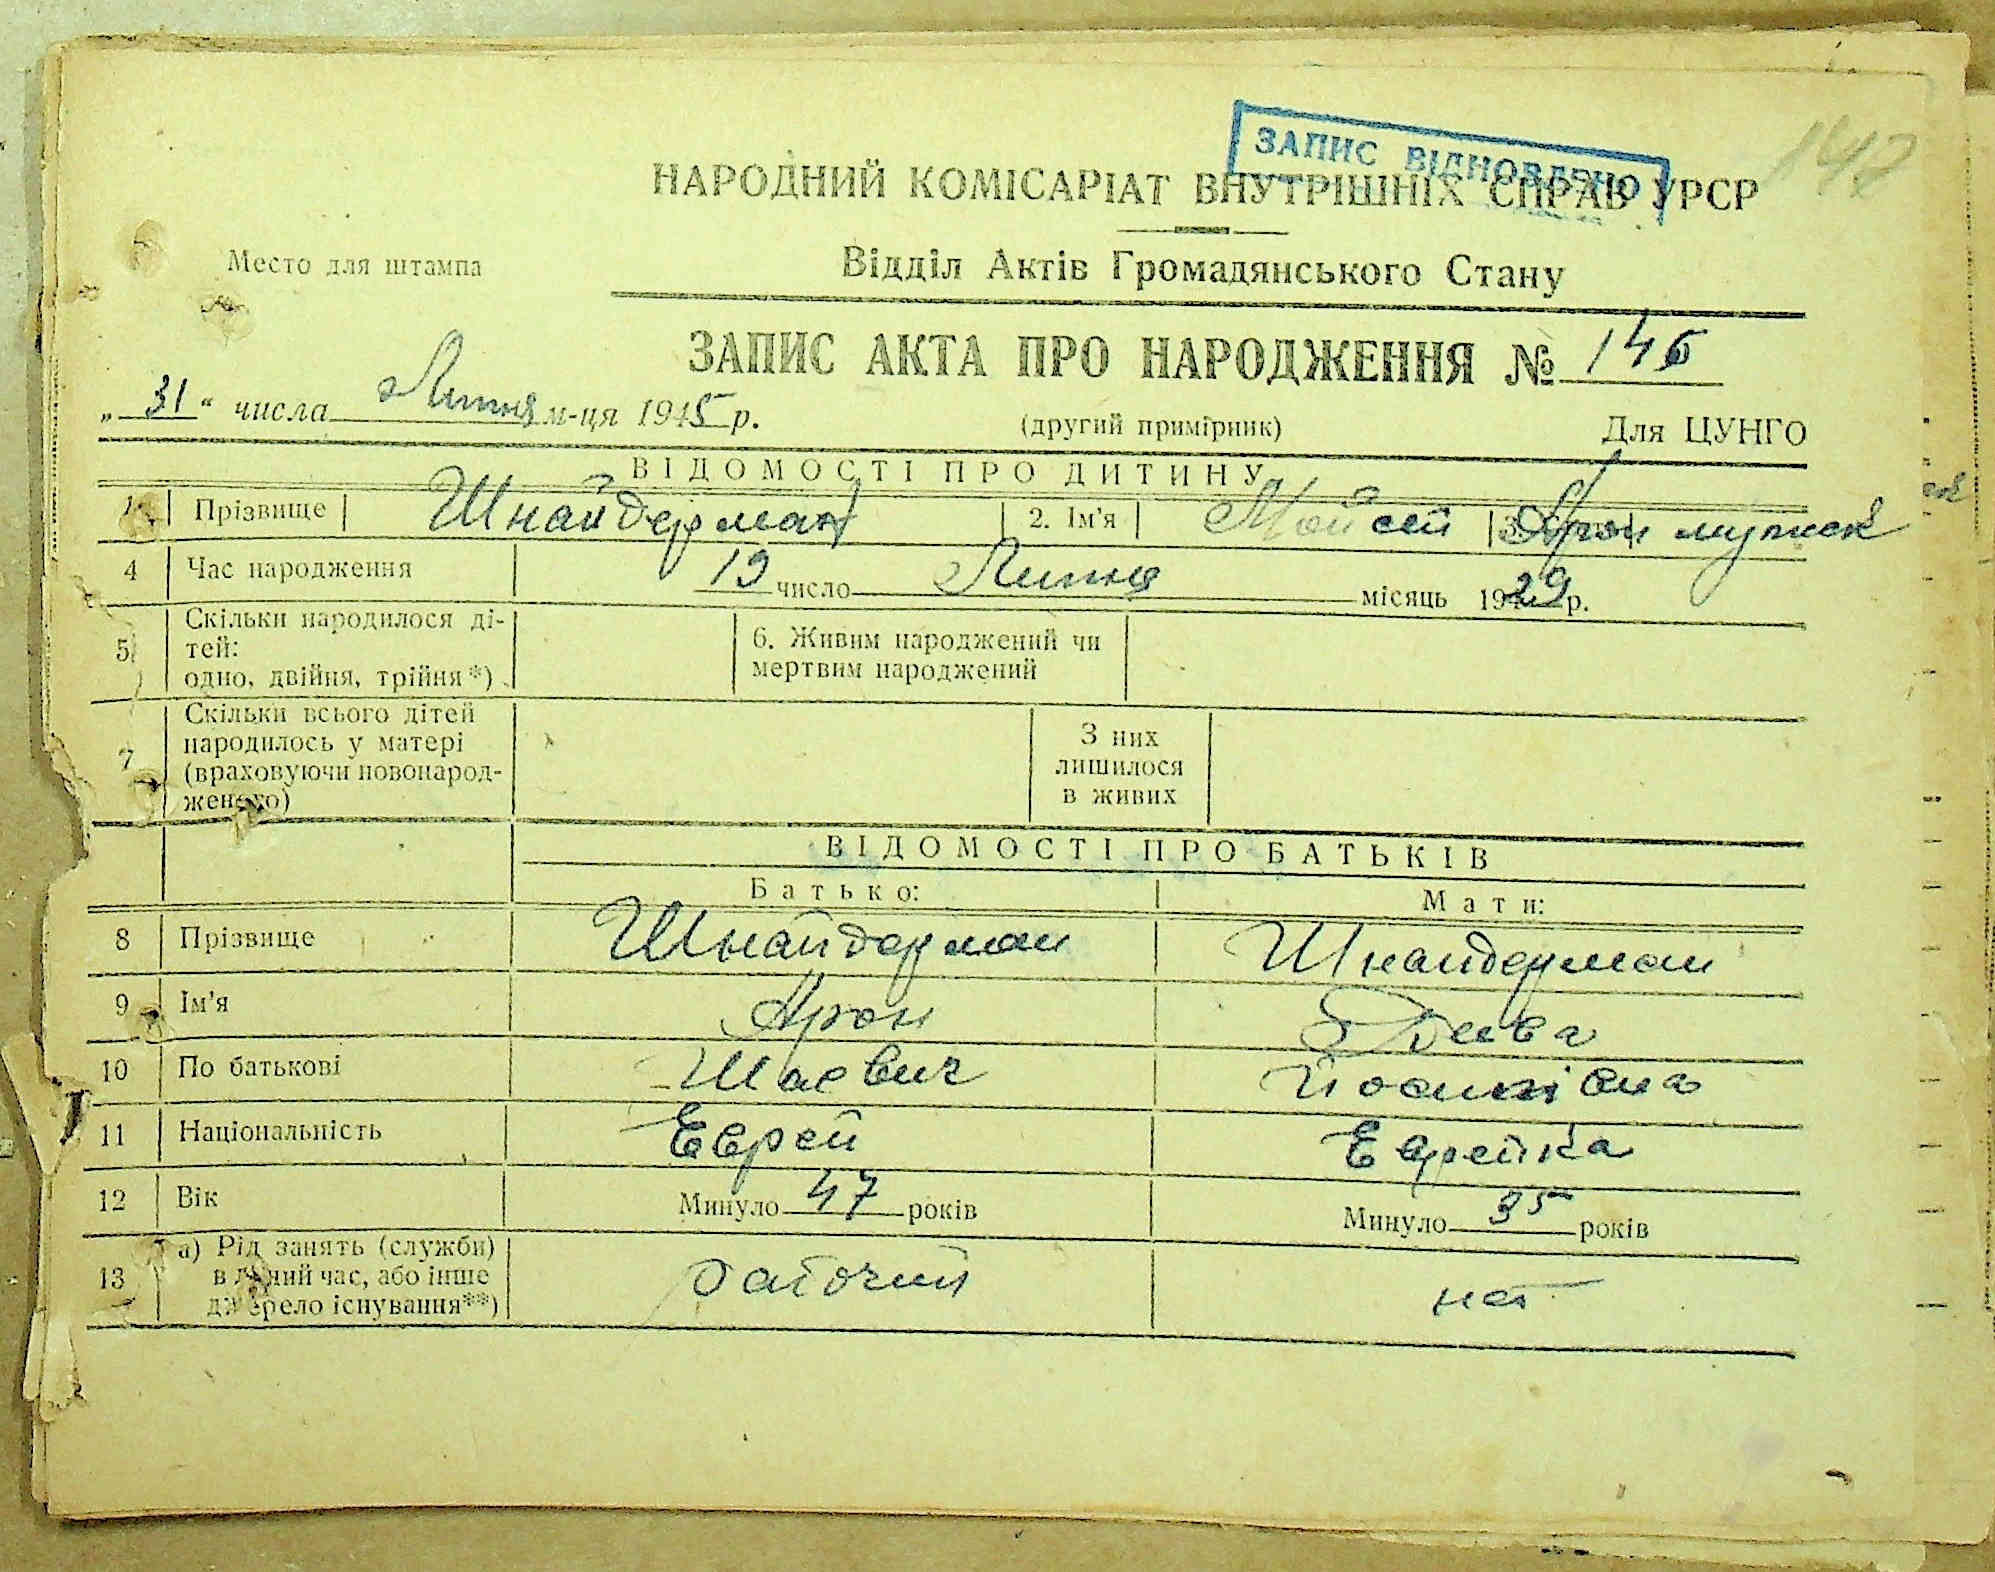 ЗАПИС ВІДНОВЛЕНО
142
НАРОДНИЙ КОМІСАРІАТ ВНУТРІШНІХ СПРАВ УРСР
Место для штампа
Відділ Актів Громадянського Стану
ЗАПИС АКТА ПРО НАРОДЖЕННЯ № 146
„31“ числа Липня м-ця 1945 р.
(другий примірник)
Для ЦУНГО
ВІДОМОСТІ ПРО ДИТИНУ
1 Прізвище Шнайдерман 2. Ім'я Мойсей 3. Арон мужск
4 Час народження 19 число Липня місяць 1929 р.
5 Скільки народилося ді-
тей:
одно, двійня, трійня*)
6. Живим народжений чи
мертвим народжений
7 Скільки всього дітей
народилось у матері
(враховуючи новонарод-
женого)
З них
лишилося
в живих
ВІДОМОСТІ ПРО БАТЬКІВ
Батько: Мати:
8 Прізвище Шнайдерман Шнайдерман
9 Ім'я Арон
10 По батькові Шаевич
11 Національність Еврей Еврейка
12 Вік Минуло 47 років Минуло 35 років
13 а) Рід занять (служби)
в даний час, або інше
джерело існування**)
рабочий нет